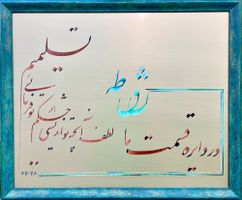 در دایره قسمت ما
نقطه
تسلیمیم
لطف آنچه تو اندیشی
حکم آنچه تو فرمایی